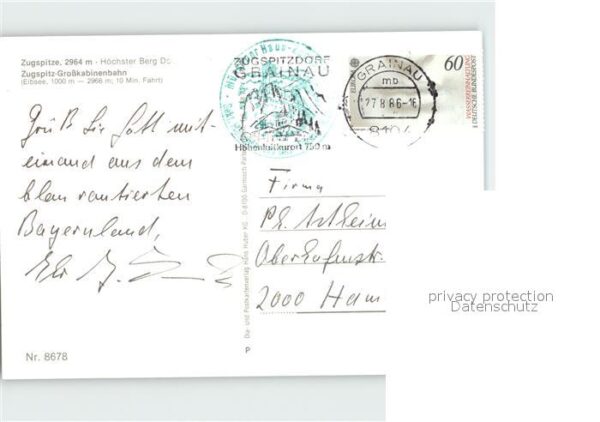 Zugspitze, 2964 m - Höchster Berg
Zugspitz-Großkabinenbahn
(Eibsee, 1000 m — 2966 m; 10 Min. Fahrt)
ZUGSPITZDORF
GRAINAU
Höhenluftkurort 750 m
GRAINAU
mb
27.8.86-16
8104
60
EUROPA
DEUTSCHE BUNDESPOST
Grüß Sie Gott mit-
einand aus dem
blau rautierten
Bayernland,
Firma
Ph.
2000 Ham
Dia- und Postkartenverlag Hans Huber KG · D-8100 Garmisch-Parte
P
Nr. 8678
privacy protection
Datenschutz